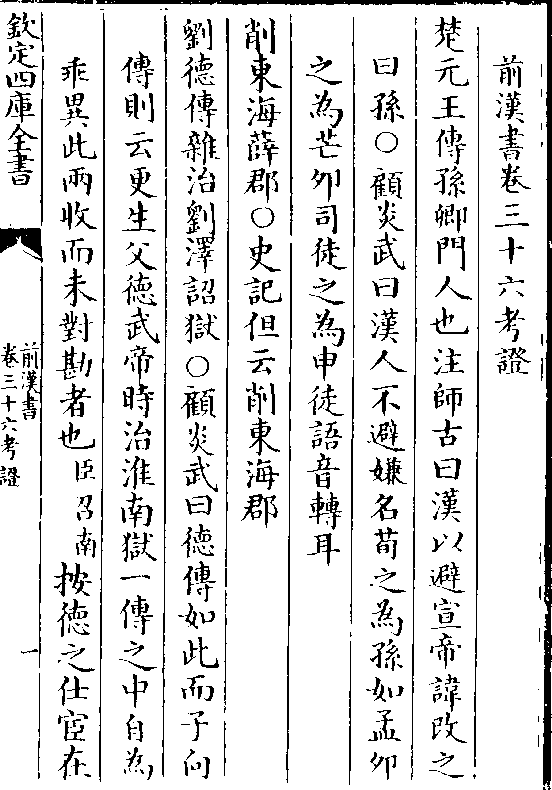 前漢書卷三十六考證
楚元王傳孫卿門人也注師古曰漢以避宣帝諱改之
曰孫○顧炎武曰漢人不避嫌名荀之為孫如孟卯
之為芒卯司徒之為申徒語音轉耳
削東海薛郡○史記但云削東海郡
劉德傳雜治劉澤詔獄○顧炎武曰德傳如此而子向
傳則云更生父德武帝時治淮南獄一傳之中自為
乖異此兩收而未對勘者也臣召南按德之仕宦在
欽定四庫全書
前漢書
卷三十六考證
一